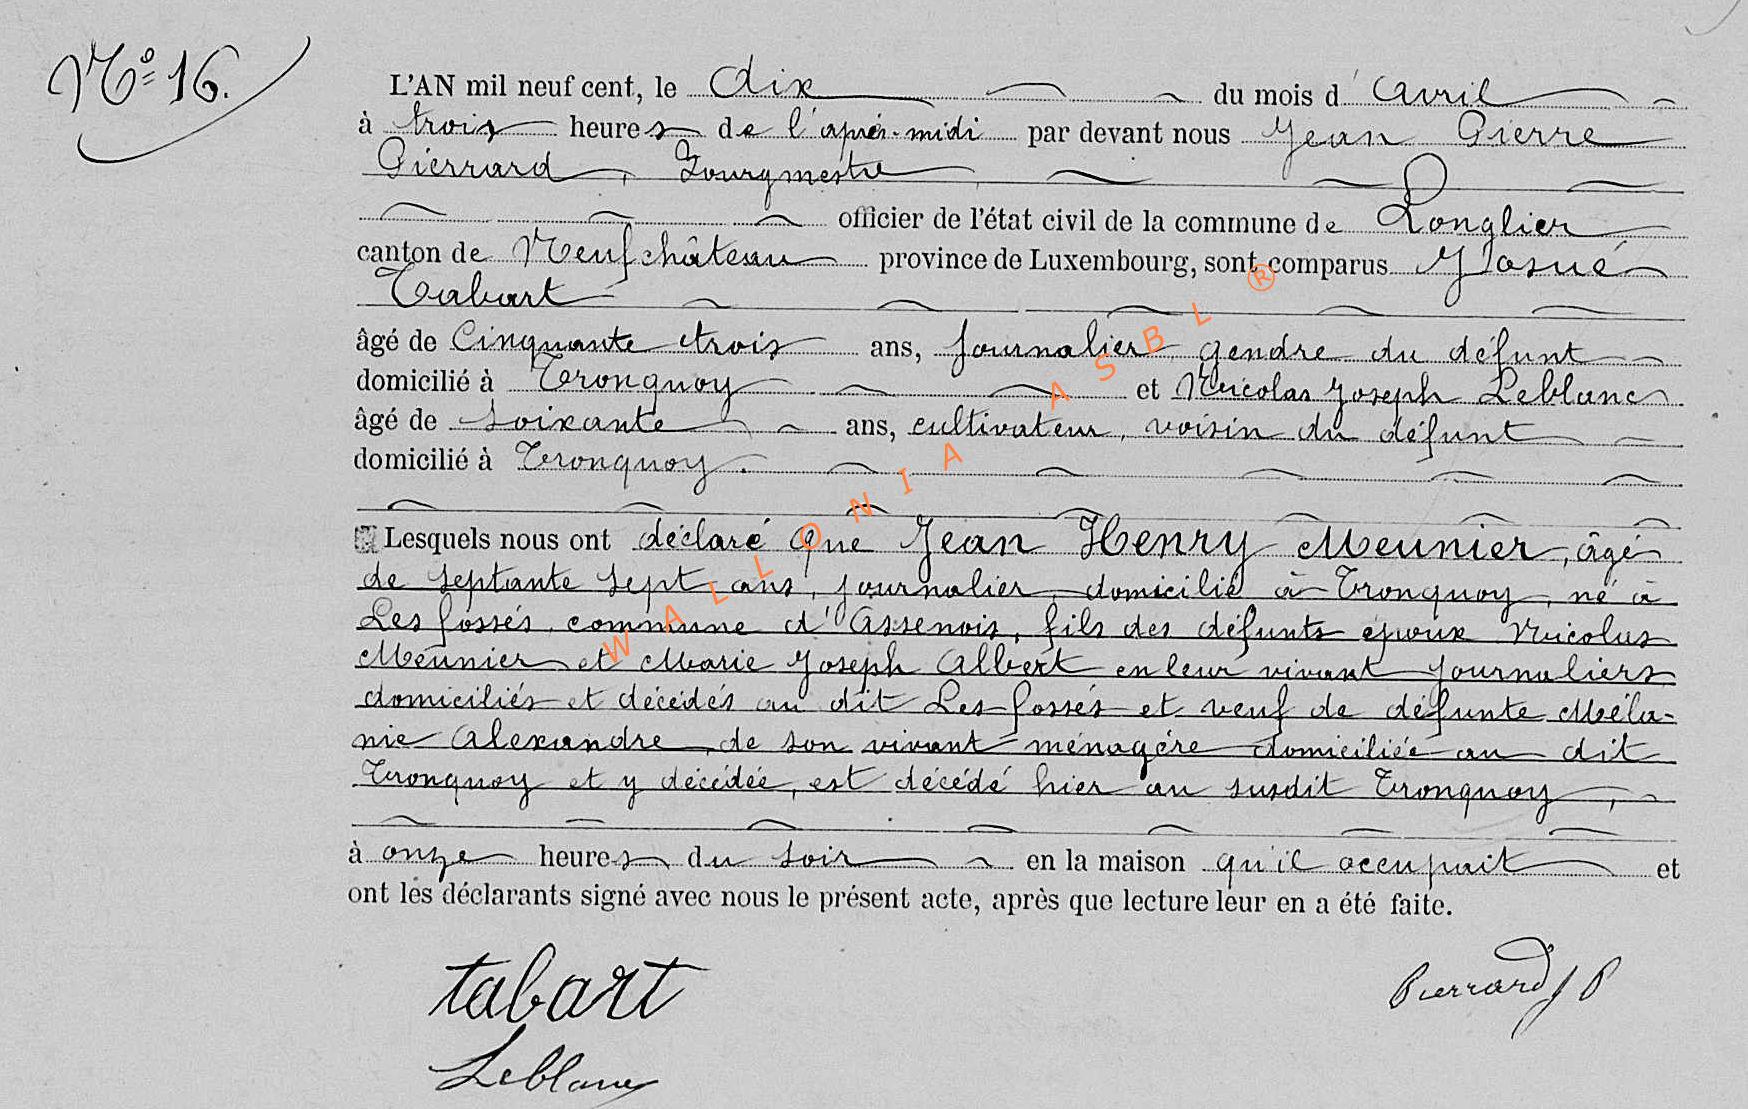 Nº 16.
L'AN mil neuf cent, le dix du mois d'avril
à trois heures de l'après-midi par devant nous Jean Pierre
Pierrard, Bourgmestre
officier de l'état civil de la commune de Longlier,
canton de Neufchâteau province de Luxembourg, sont comparus Josué
Tabart
âgé de Cinquante trois ans, journalier, gendre du défunt
domicilié à Tronquoy et Nicolas Joseph Leblanc
âgé de soixante ans, cultivateur, voisin du défunt
domicilié à Tronquoy.
Lesquels nous ont déclaré que Jean Henry Meunier, âgé
de septante sept ans, journalier, domicilié à Tronquoy, né à
Les fossés, commune d'Assenois, fils des défunts époux Nicolas
Meunier et Marie Joseph Albert en leur vivant journaliers
domiciliés et décédés au dit Les fossés et veuf de défunte Méla-
nie Alexandre, de son vivant ménagère domiciliée au dit
Tronquoy et y décédée, est décédé hier au susdit Tronquoy,
à onze heures du soir en la maison qu'il occupait et
ont les déclarants signé avec nous le présent acte, après que lecture leur en a été faite.
tabart
Pierrard J P
Leblanc
WALLONIA ASBL ®